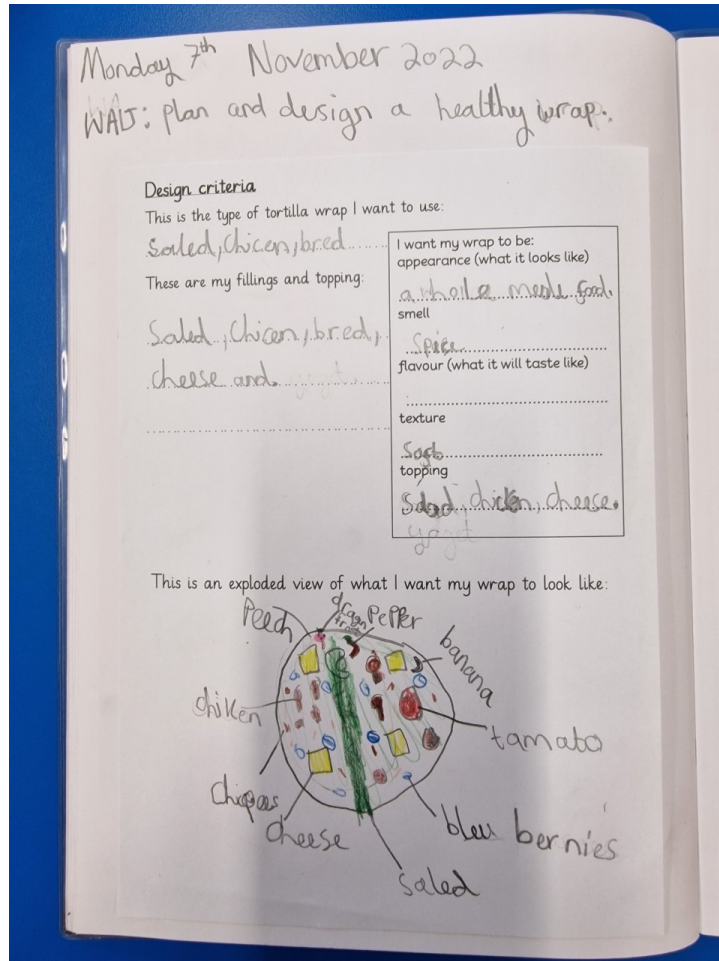 Monday 7th November 2022
WALT: plan and design a healthy wrap.
Design criteria
This is the type of tortilla wrap I want to use:
Saled, Chicen, bred
These are my fillings and topping:
Saled, Chicen, bred,
cheese and
I want my wrap to be:
appearance (what it looks like)
food.
smell
Spice
flavour (what it will taste like)
texture
topping
Salad, chicken, cheese.
This is an exploded view of what I want my wrap to look like:
Peech
dragn
Pepper
banana
chiken
tamato
cheese
bleu bernies
saled